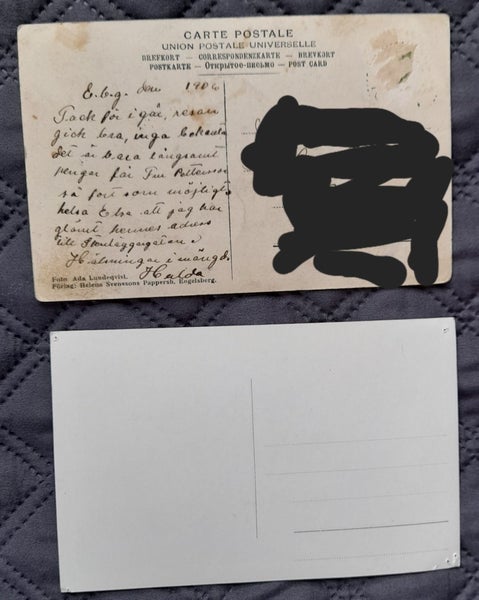 CARTE POSTALE
UNION POSTALE UNIVERSELLE
BREFKORT — CORRESPONDENZKARTE — BREVKORT
POSTKARTE — Открытое-письмо — POST CARD
E.b.g. den 1906
Tack för i går, resan
gick bra, inga
det är bara långsamt
pengar får Fru Pettersson
så fort som möjligt
helsa Elsa att jag har
glömt hennes adress
till
Hälsningar i mängd.
Hulda
Foto Ada Lundeqvist.
Förlag: Helena Svenssons Pappersh, Engelsberg.